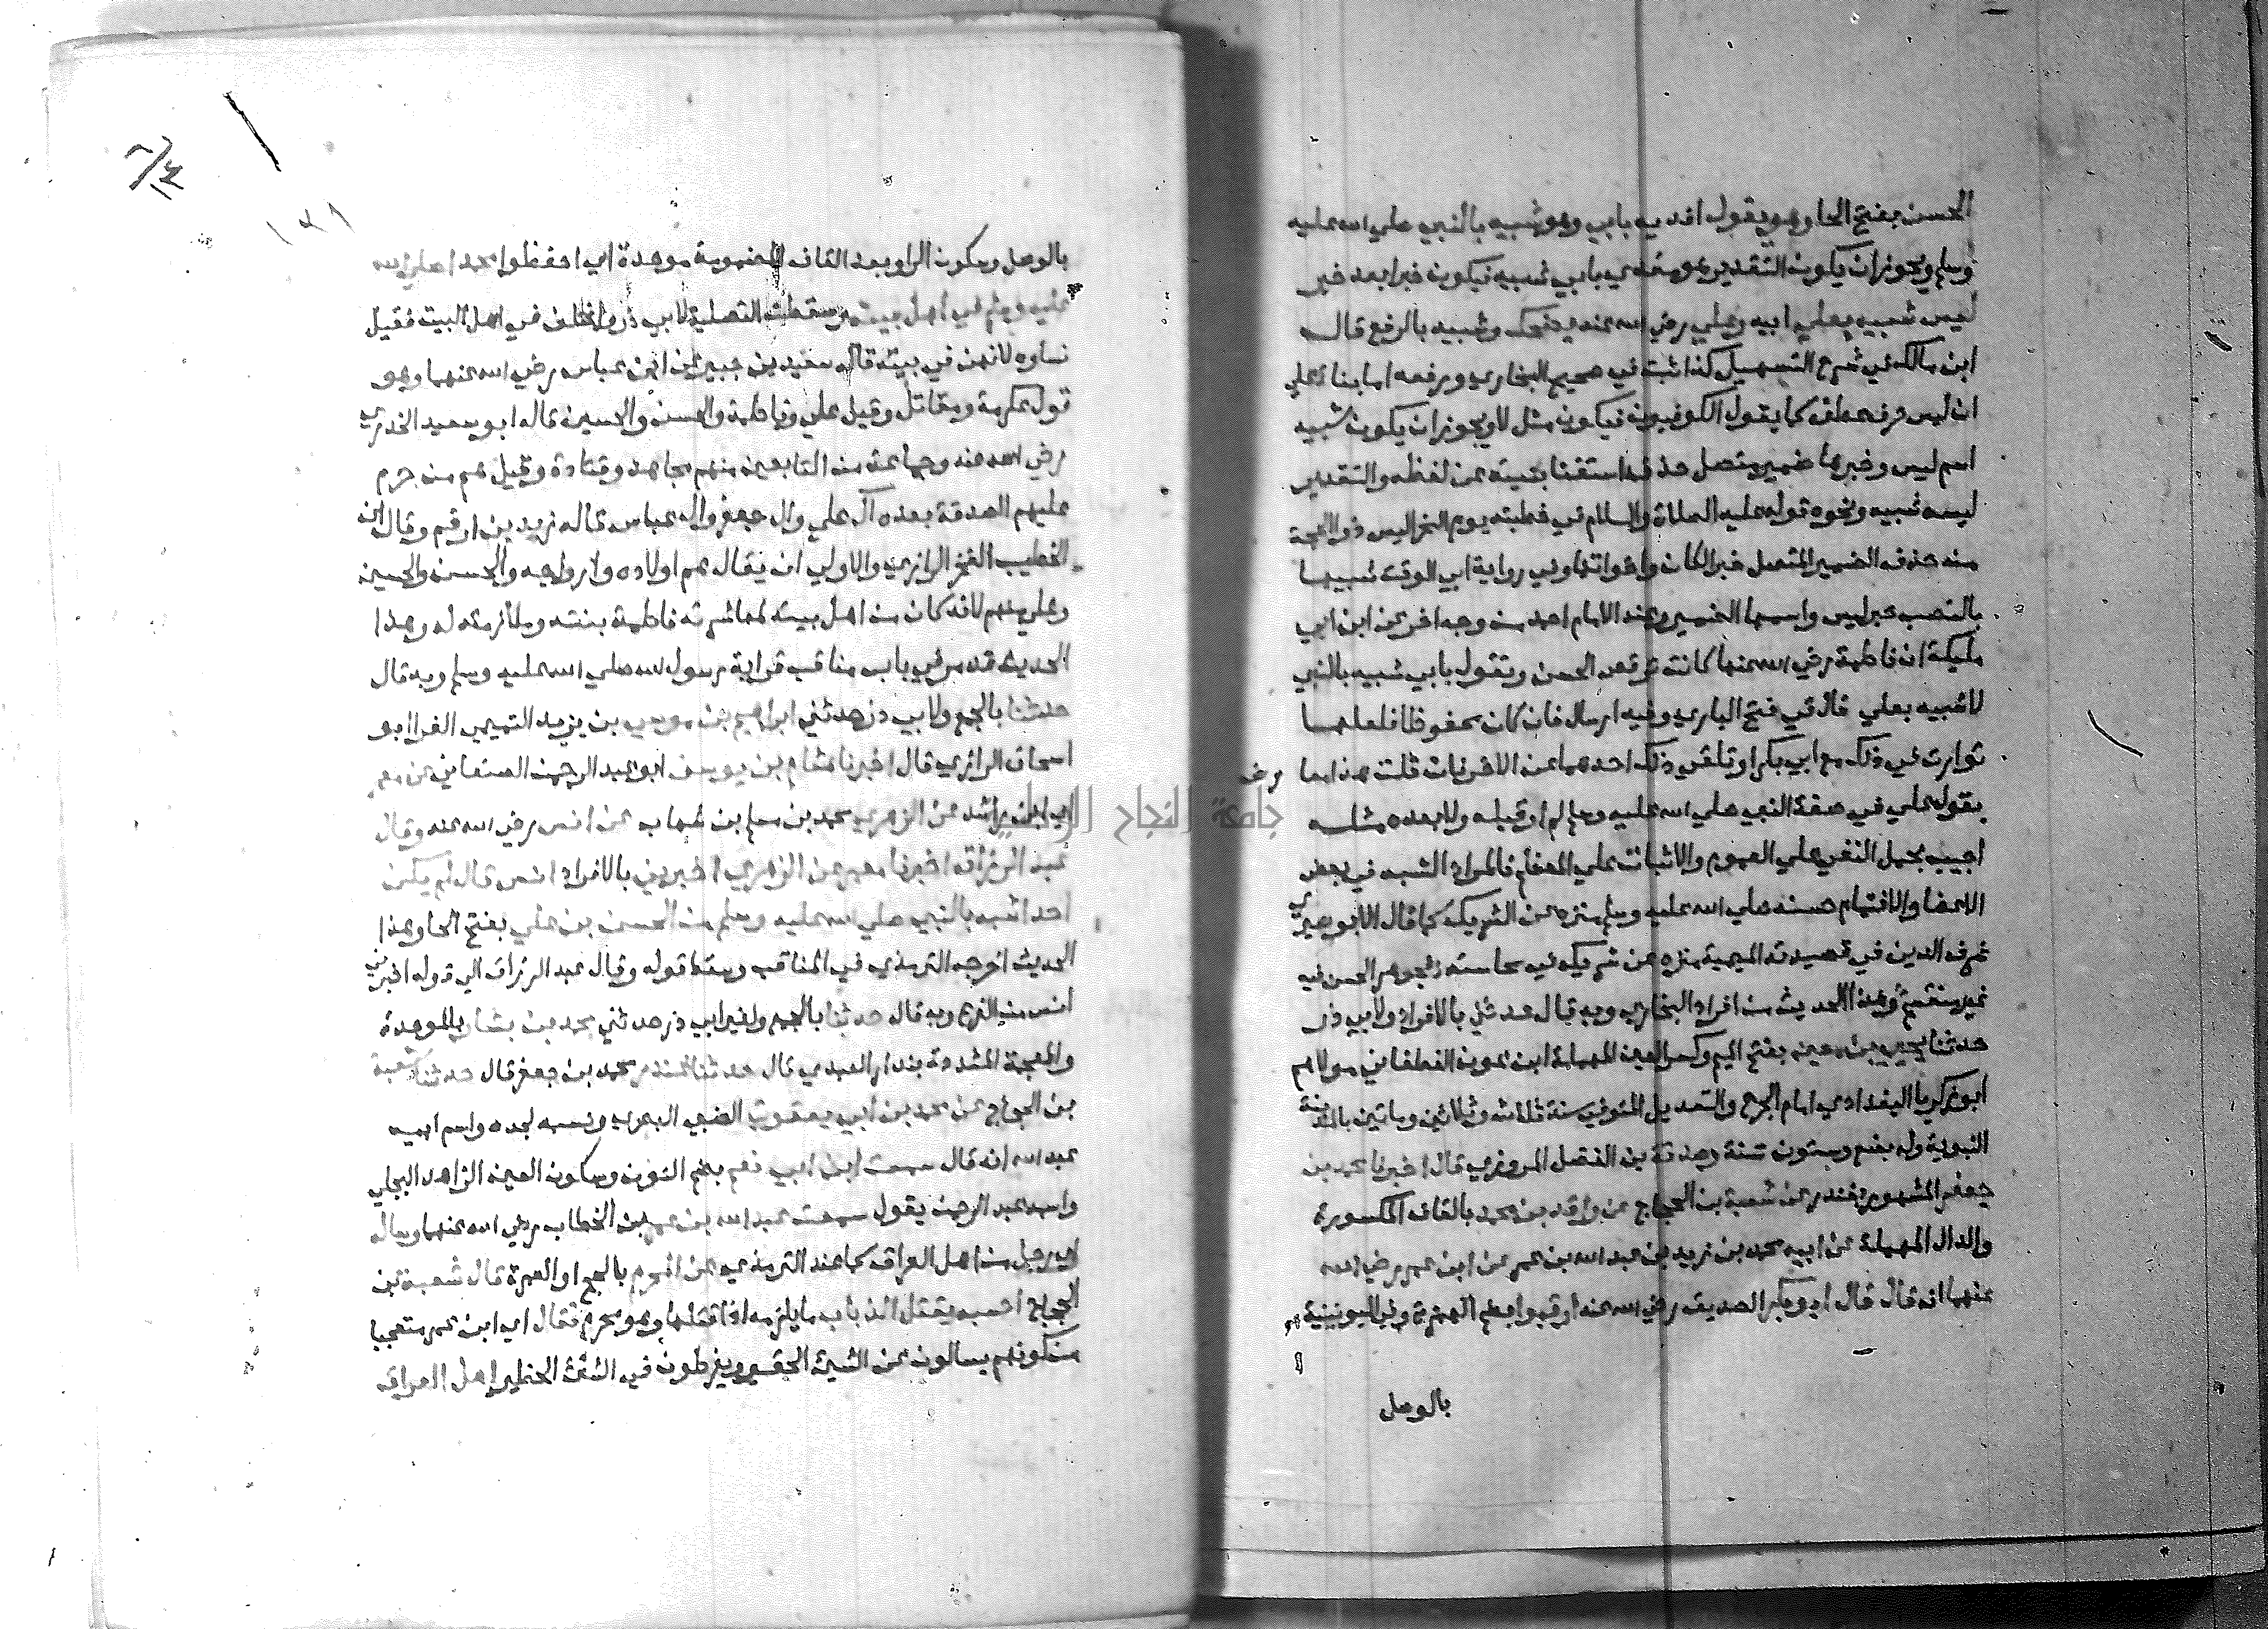 الحسن بفتح الحا وهو يقول افديه بابي وهو شبيه بالنبي صلي الله عليه
وسلم ويجوز ان يكون التقدير هو مفدي بابي شبيه فيكون خبرا بعد خبر
ليس شبيه بعلي ابيه وعلي رضي الله عنه يضحك وشبيه بالرفع قال
ابن مالك في شرح التسهيل كذا ثبت في صحيح البخاري ورفعه اما بنا علي
ان ليس حرف عطف كما يقول الكوفيون فيكون مثل لا ويجوز ان يكون شبيه
اسم ليس وخبرها ضمير متصل حذف استغنا بنيته عن لفظه والتقدير
ليسه شبيه ونحوه قوله عليه الصلاة والسلام في خطبته يوم النحر اليس ذو الحجة
من حذف الضمير المتصل خبرا لكان واخواتها وفي رواية ابي الوقت شبيها
بالنصب خبر ليس واسمها الضمير وعند الامام احمد من وجه اخر عن ابن ابي
مليكة ان فاطمة رضي الله عنها كانت ترقص الحسن وتقول بابي شبيه بالنبي
لا شبيه بعلي قال في فتح الباري وفيه ارسال فان كان محفوظا فلعلها
تواردت في ذلك مع ابي بكر او تلقي ذلك احدهما عن الاخر فان قلت هذا
بقول علي في صفة النبي صلي الله عليه وسلم لم ار قبله ولا بعده مثله
اجيب بحمل النفي علي العموم والاثبات علي المعظم فالمراد الشبه في بعض
الاعضا والا فتمام حسنه صلي الله عليه وسلم منزه عن الشريك كما قال الابوصيري
شرف الدين في قصيدته الميمية منزه عن شريك في محاسنه فجوهر الحسن فيه
غير منقسم وهذا الحديث من افراد البخاري وبه قال حدثني بالافراد ولابي ذر
حدثنا يحيي بن معين بفتح الميم وكسر العين المهملة ابن عون الغطفاني مولاهم
ابو زكريا البغدادي امام الجرح والتعديل المتوفي سنة ثلاث وثلاثين ومايتين بالمدينة
النبوية وله بضع وستون سنة وصدقة بن الفضل المروزي قال اخبرنا محمد بن
جعفر المشهور بغندر عن شعبة بن الحجاج عن واقد بن محمد بالقاف المكسورة
والدال المهملة عن ابيه محمد بن زيد بن عبد الله بن عمر عن ابن عمر رضي الله
عنهما انه قال قال ابو بكر الصديق رضي الله عنه ارقبوا بقطع الهمزة وفي اليونينية
بالوصل
١٧١
بالوصل وسكون الراو بعد القاف المضمومة موحدة اي احفظوا محمدا صلي الله
عليه وسلم في اهل بيته وسقطت التصلية لابي ذر واختلف في اهل البيت فقيل
نساوه لانهن في بيته قاله سعيد بن جبير عن ابن عباس رضي الله عنهما وهو
قول عكرمة ومقاتل وقيل علي وفاطمة والحسن والحسين قاله ابو سعيد الخدري
رضي الله عنه وجماعة من التابعين منهم مجاهد وقتادة وقيل هم من حرم
عليهم الصدقة بعده آل علي وال جعفر وال عباس قاله زيد بن ارقم وقال ابن
الخطيب الفخر الرازي والاولي ان يقال هم اولاده وازواجه والحسن والحسين
وعلي منهم لانه كان من اهل بيته لمعاشرته فاطمة بنته وملازمته له وهذا
الحديث قد مر في باب مناقب قرابة رسول الله صلي الله عليه وسلم وبه قال
حدثنا بالجمع ولابي ذر حدثني ابراهيم بن موسي بن يزيد التميمي الفرا ابو
اسحاق الرازي قال اخبرنا هشام بن يوسف ابو عبد الرحمن الصنعاني عن معمر
اي ابن راشد عن الزهري محمد بن مسلم بن شهاب عن انس رضي الله عنه وقال
عبد الرزاق اخبرنا معمر عن الزهري اخبرني بالافراد انس قال لم يكن
احد اشبه بالنبي صلي الله عليه وسلم من الحسن بن علي بفتح الحا وهذا
الحديث اخرجه الترمذي في المناقب وسقط قوله وقال عبد الرزاق الي قوله اخبرني
انس من الفرع وبه قال حدثنا بالجمع ولغير ابي ذر حدثني محمد بن بشار بالموحدة
والمعجمة المشددة بندار العبدي قال حدثنا غندر محمد بن جعفر قال حدثنا شعبة
بن الحجاج عن محمد بن ابي يعقوب الضبي البصري ونسبه لجده واسم ابيه
عبد الله انه قال سمعت ابن ابي نعم بضم النون وسكون العين الزاهد البجلي
واسمه عبد الرحمن يقول سمعت عبد الله بن عمر بن الخطاب رضي الله عنهما وساله
اي رجل من اهل العراق كما عند الترمذي عن المحرم بالحج او العمرة قال شعبة بن
الحجاج احسبه يقتل الذباب ما يلزمه اذا قتلها وهو محرم فقال اي ابن عمر متعجبا
من كونهم يسالون عن الشي الحقير ويفرطون في الشي الخطير اهل العراق
جامعة النجاح الوطنية